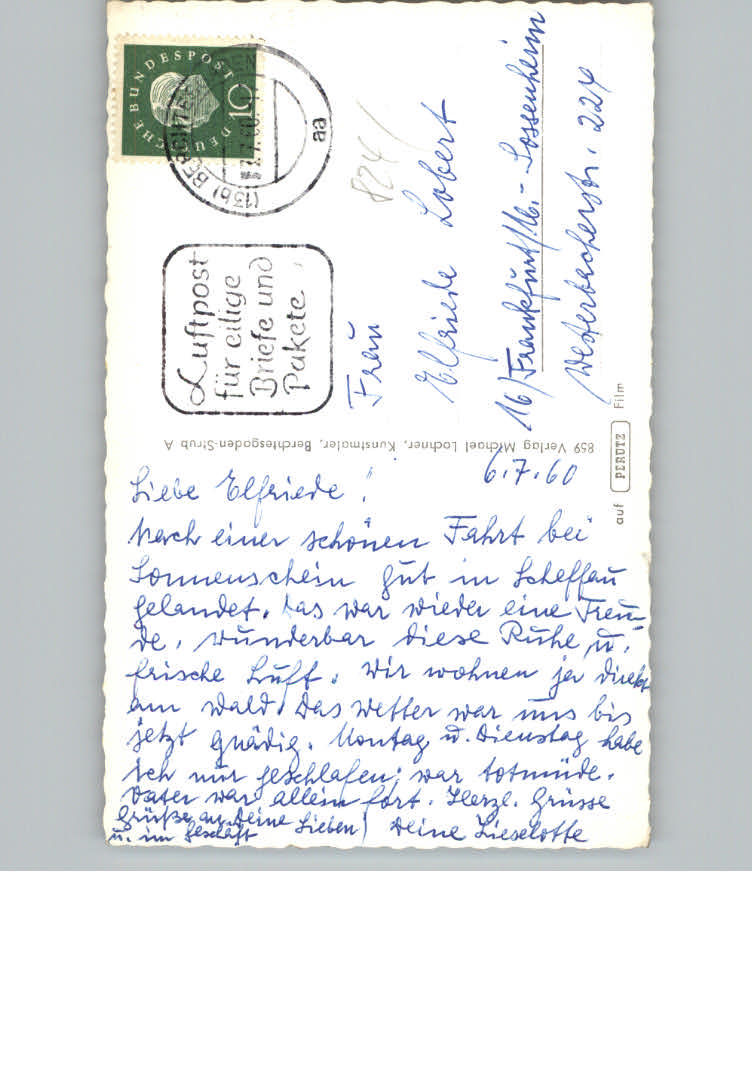 DEUTSCHE BUNDESPOST
10
aa
Luftpost
für eilige
Briefe und
Pakete
824/
Frau
Elfriede Lobert
16) Frankfurt/M. - Sossenheim
Westerbacherstr. 224
859 Verlag Michael Lochner, Kunstmaler, Berchtesgaden-Strub A
auf PERUTZ Film
6.7.60
Liebe Elfriede!
Nach einer schönen Fahrt bei
Sonnenschein gut in Scheffau
gelandet. Das war wieder eine Freu-
de, wunderbar diese Ruhe u.
frische Luft. Wir wohnen ja direkt
am Wald. Das Wetter war uns bis
jetzt gnädig. Montag u. Dienstag habe
ich nur geschlafen; war totmüde.
Vater war allein fort. Herzl. Grüsse
Deine Lieselotte
Grüße an Deine Lieben
u. im Geschäft